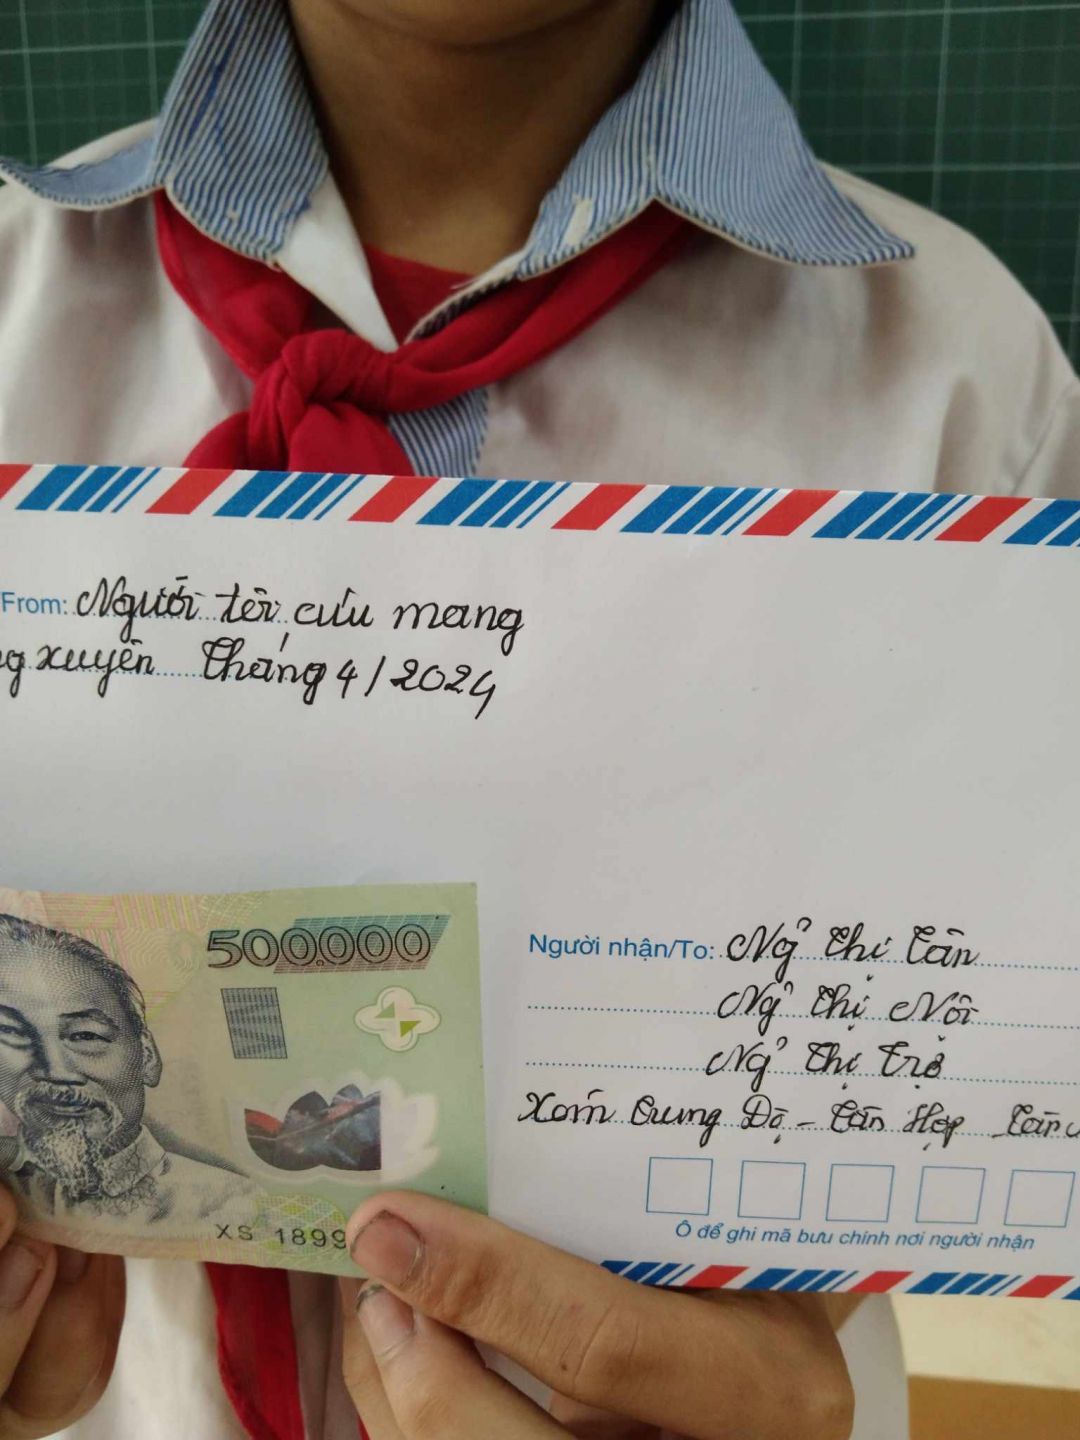 From: Người tới cưu mang
g xuyên Tháng 4/2024
500.000
Người nhận/To: Ng Thị Tân
Ng Thị Nôi
Ng Thị Trợ
Xóm Trung Độ - Tân Hợp Tân
XS 1899
Ô để ghi mã bưu chính nơi người nhận